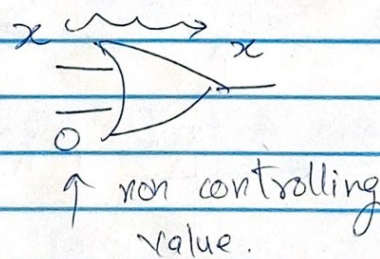 x x
0
↑ non controlling
value.